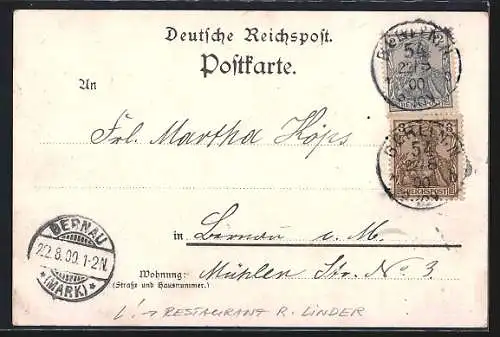 Deutsche Reichspost.
Postkarte.
An
Frl. Martha Köps
in Bernau i. M.
Wohnung: Mühlen Str. No 3.
(Straße und Hausnummer.)
L! → RESTAURANT R. LINDER
BERLIN
54
22/8
00
REICHSPOST
BERLIN
54
22/8
00
3 3
REICHSPOST
BERNAU
22.8.00.1-2N.
* (MARK) *